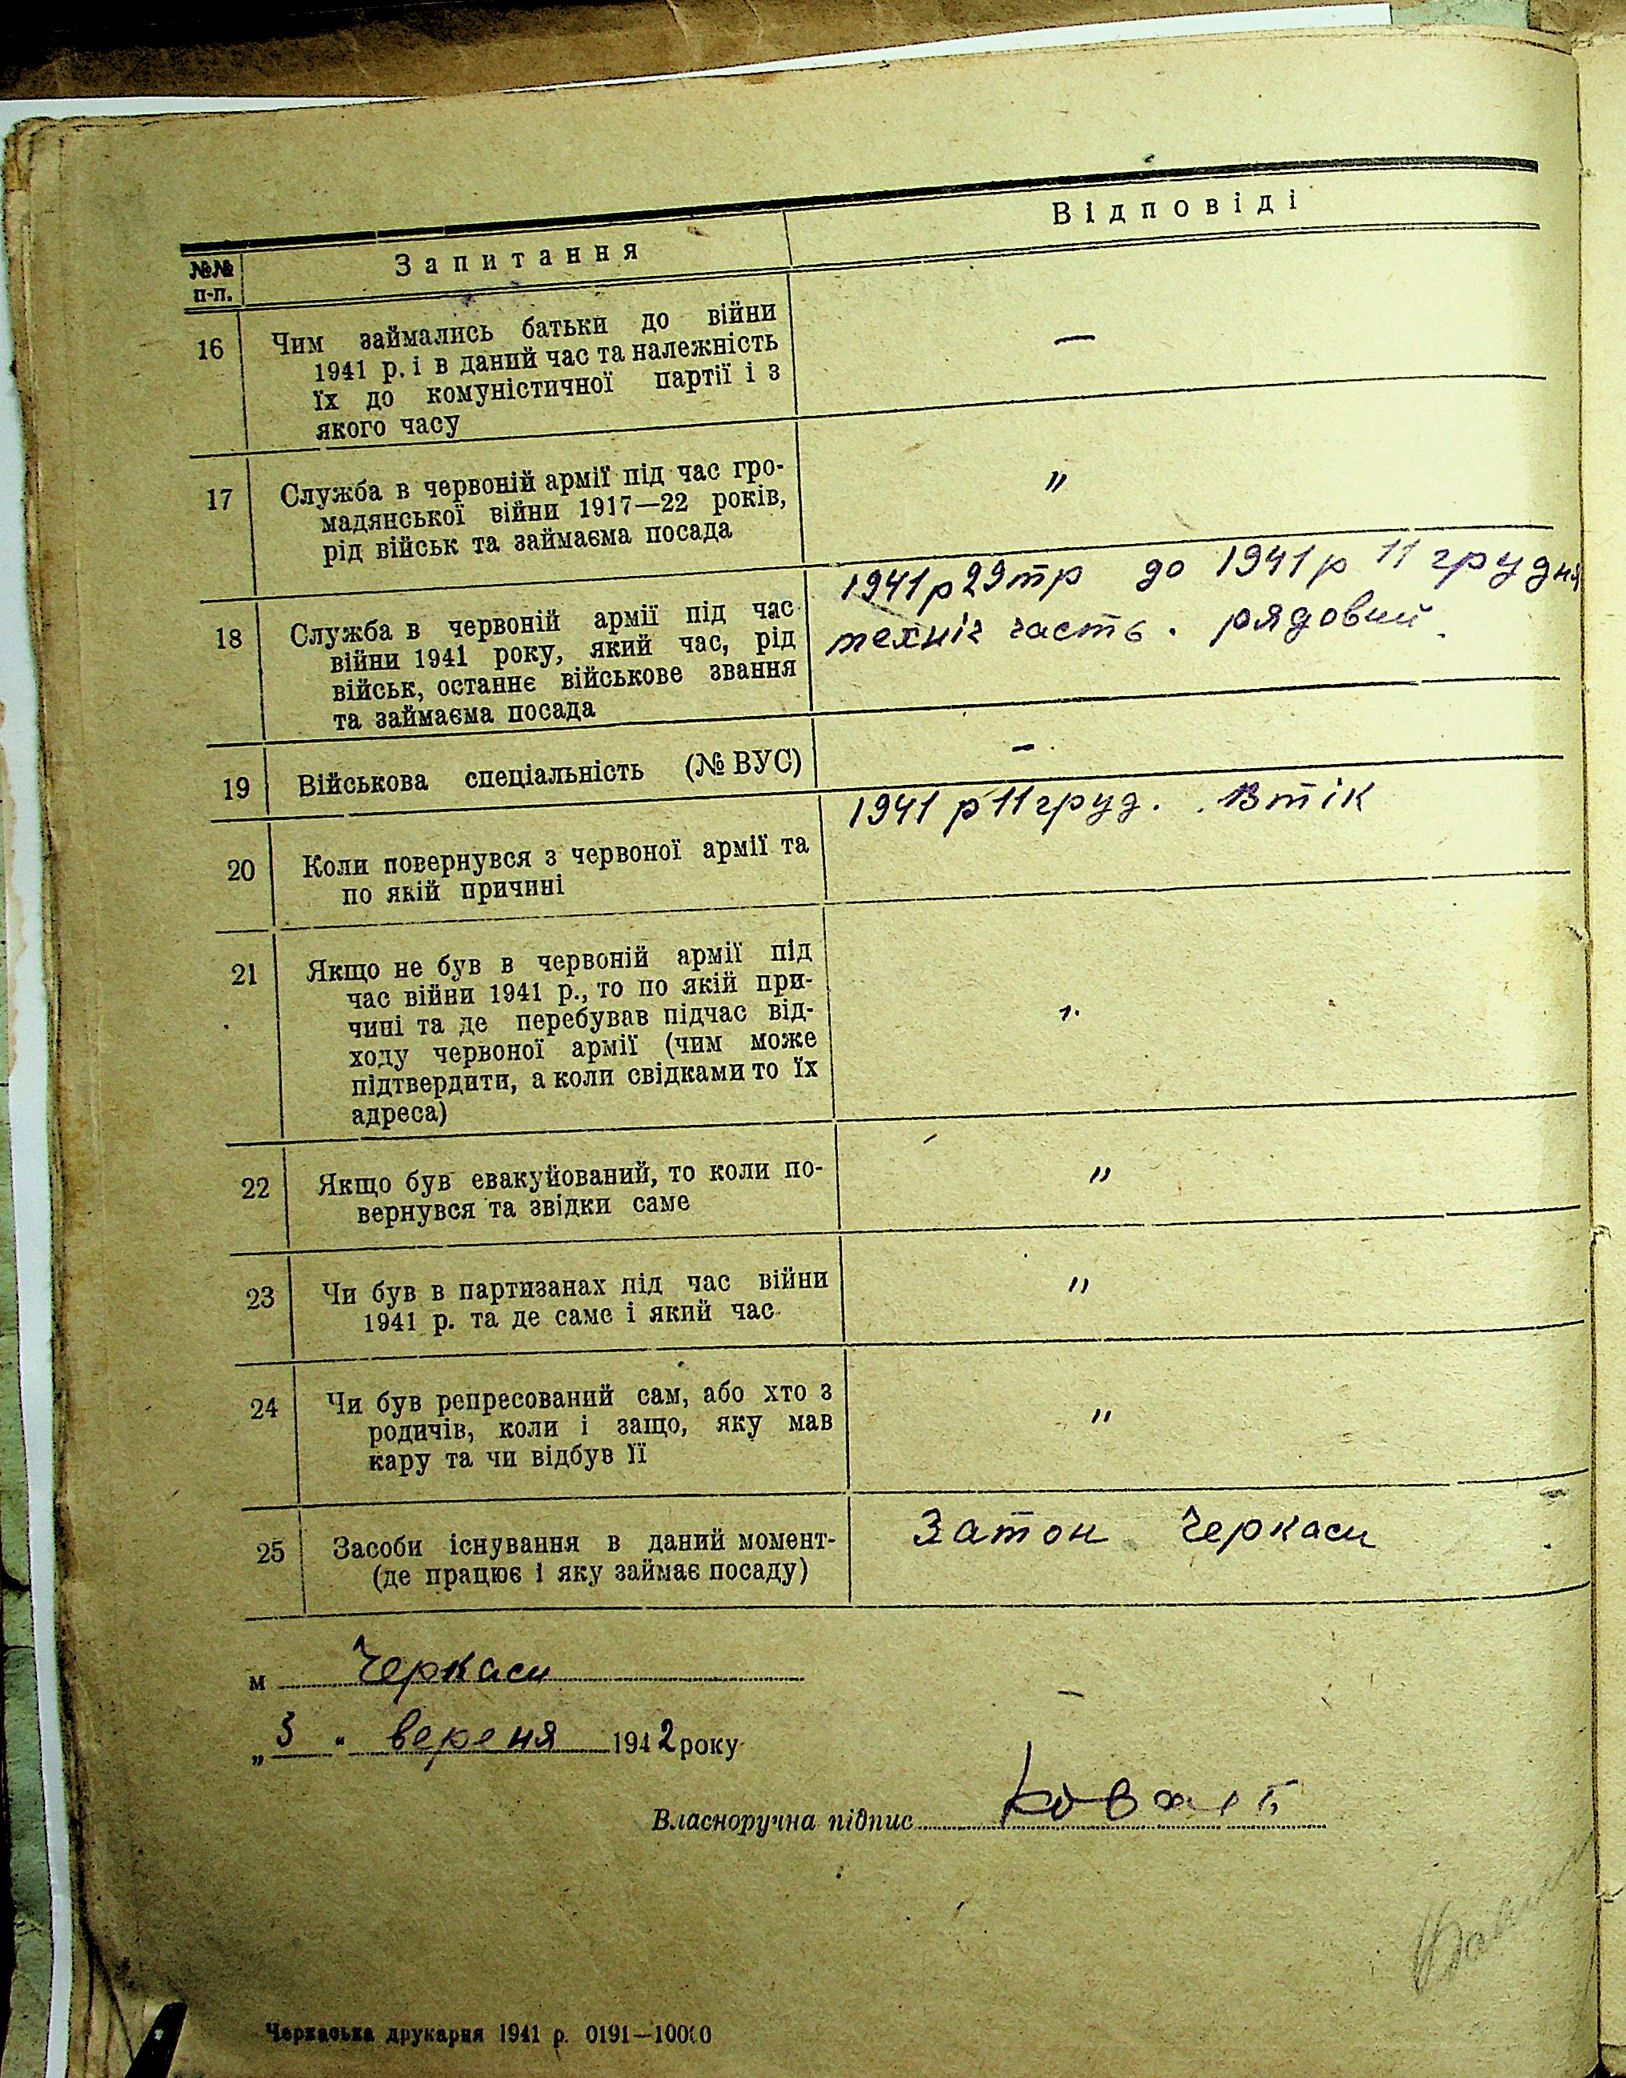 №№ п-п.
Запитання
Відповіді
16
Чим займались батьки до війни
1941 р. і в даний час та належність
їх до комуністичної партії і з
якого часу
—
17
Служба в червоній армії під час гро-
мадянської війни 1917—22 років,
рід військ та займаєма посада
"
18
Служба в червоній армії під час
війни 1941 року, який час, рід
військ, останнє військове звання
та займаєма посада
1941 р 29 тр до 1941 р 11 грудня
техніч часть. рядовий.
19
Військова спеціальність (№ ВУС)
–
20
Коли повернувся з червоної армії та
по якій причині
1941 р 11 груд. Втік
21
Якщо не був в червоній армії під
час війни 1941 р., то по якій при-
чині та де перебував підчас від-
ходу червоної армії (чим може
підтвердити, а коли свідками то їх
адреса)
"
22
Якщо був евакуйований, то коли по-
вернувся та звідки саме
"
23
Чи був в партизанах під час війни
1941 р. та де саме і який час
"
24
Чи був репресований сам, або хто з
родичів, коли і защо, яку мав
кару та чи відбув її
"
25
Засоби існування в даний момент-
(де працює і яку займає посаду)
Затон Черкаси
м Черкаси
„ 3 " вереня 1942 року
Власноручна підпис
Черкаська друкарня 1941 р. 0191—10000